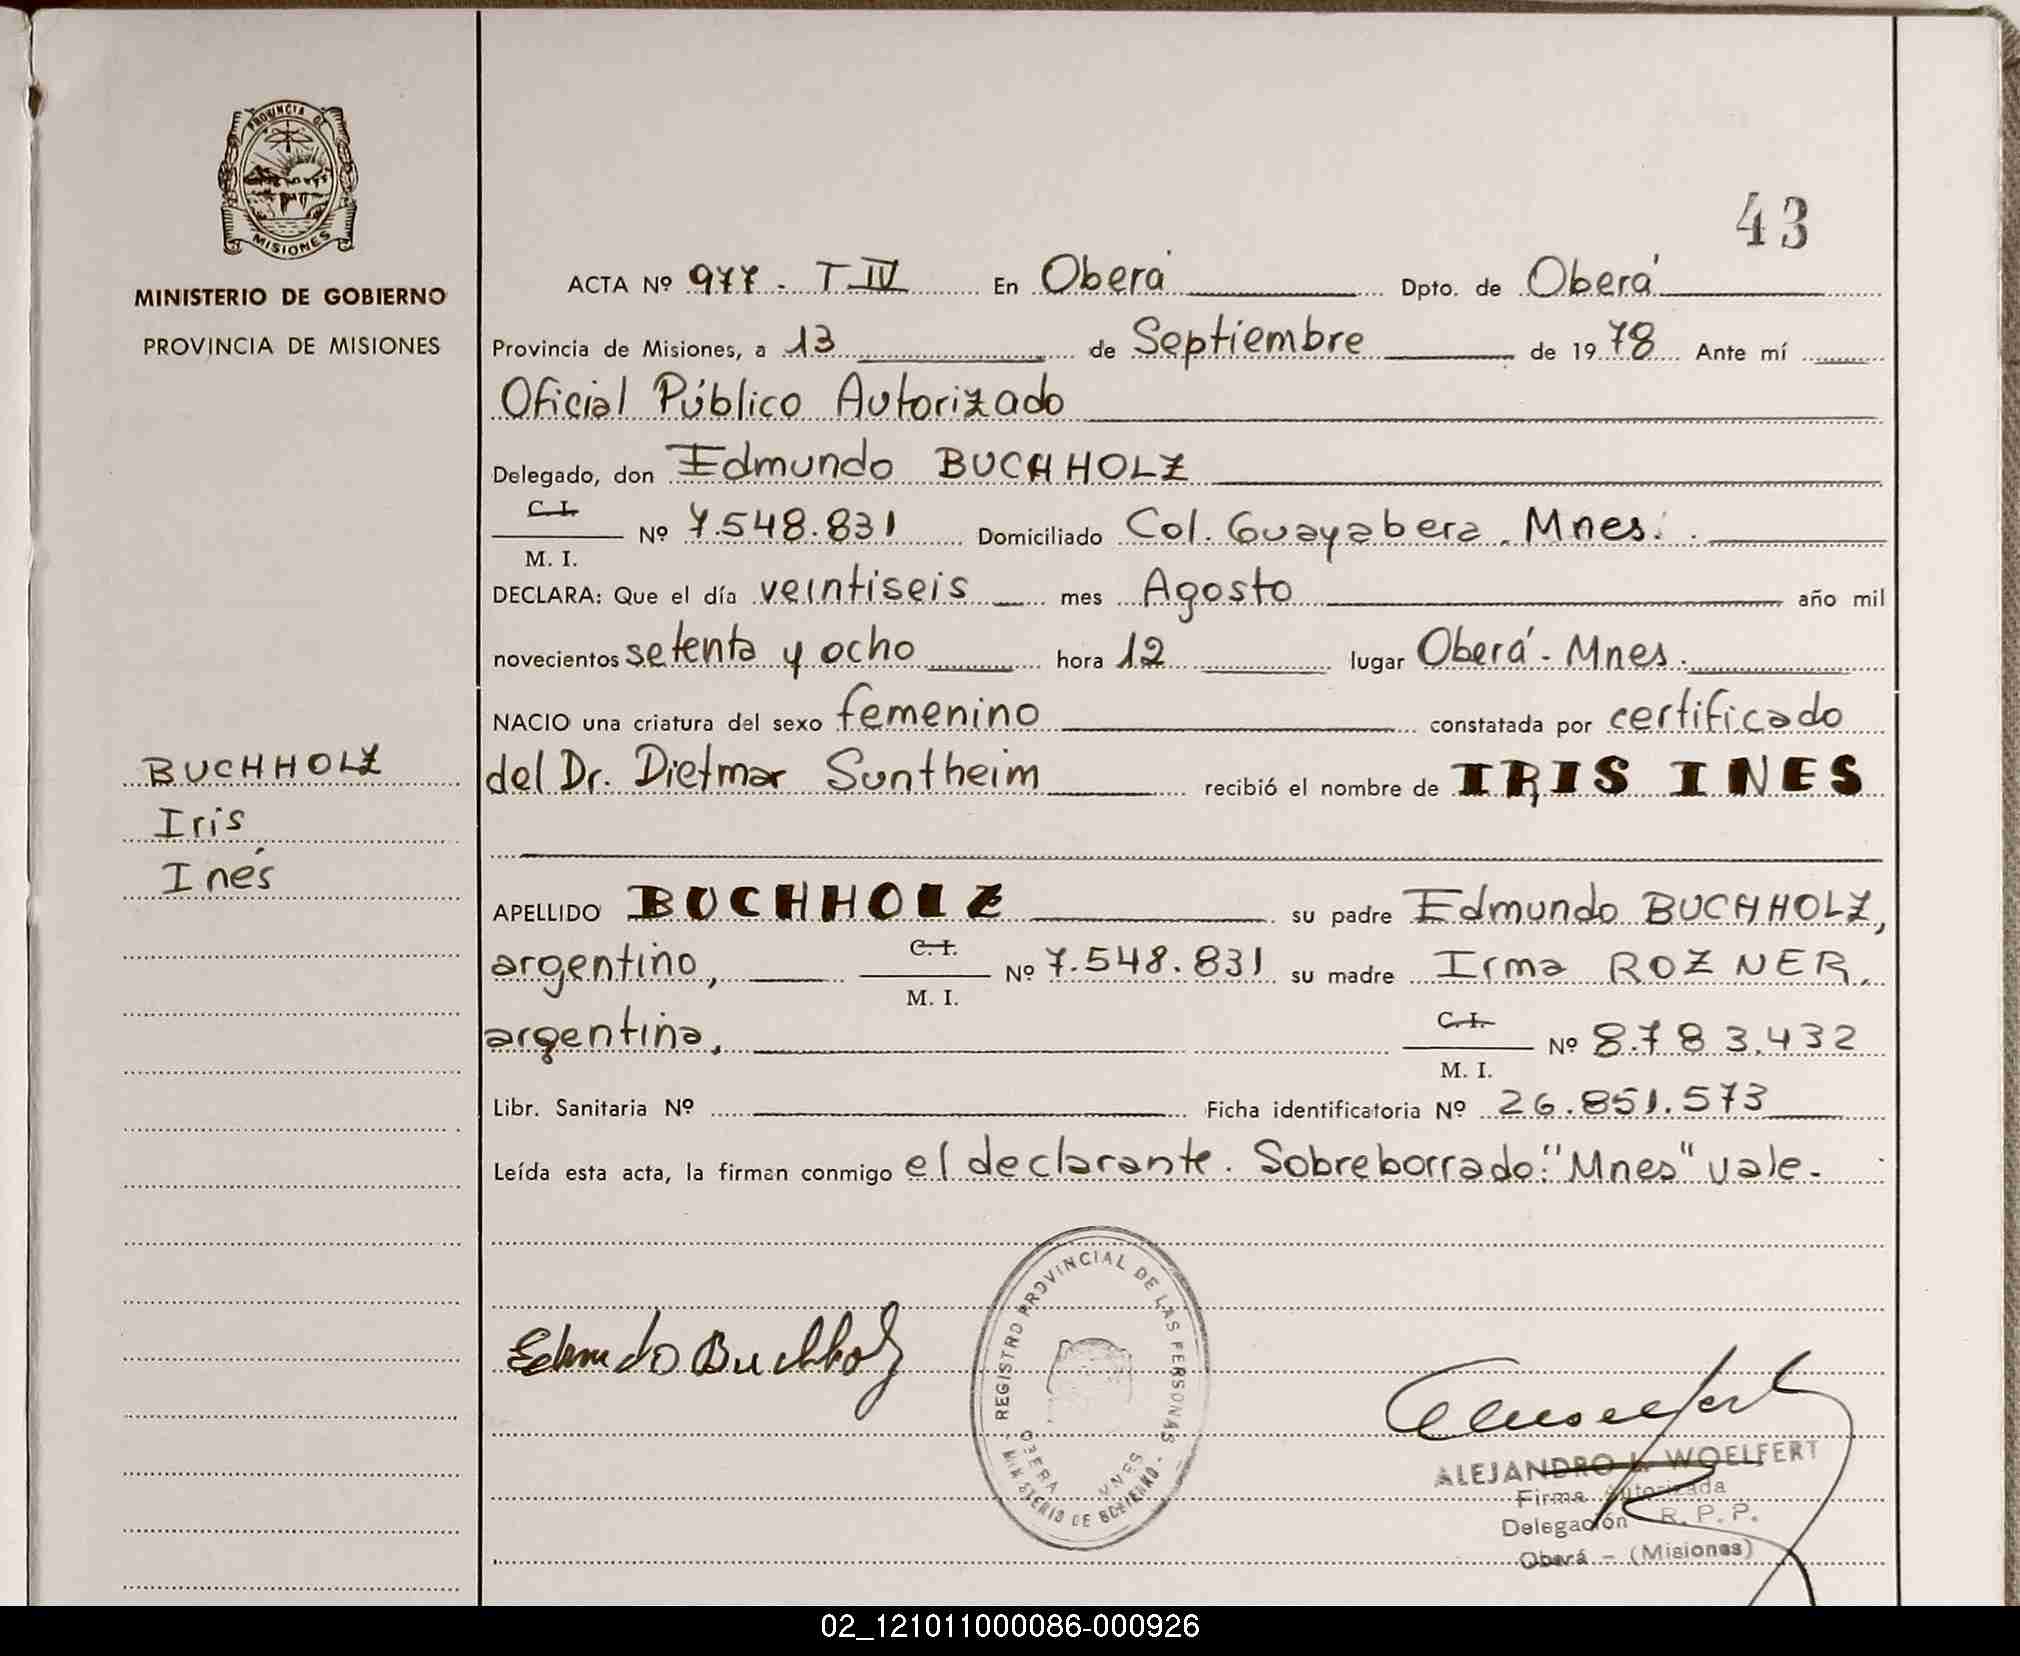 PROVINCIA DE
MISIONES
MINISTERIO DE GOBIERNO
PROVINCIA DE MISIONES
BUCHHOLZ
Iris
Inés
43
ACTA Nº 977 - T IV En Oberá Dpto. de Oberá
Provincia de Misiones, a 13 de Septiembre de 1978 Ante mí
Oficial Público Autorizado
Delegado, don Edmundo BUCHHOLZ
C. I.
M. I. Nº 7.548.831 Domiciliado Col. Guayabera. Mnes.
DECLARA: Que el día veintiseis mes Agosto año mil
novecientos setenta y ocho hora 12 lugar Oberá - Mnes.
NACIO una criatura del sexo femenino constatada por certificado
del Dr. Dietmar Suntheim recibió el nombre de IRIS INES
APELLIDO BUCHHOLZ su padre Edmundo BUCHHOLZ,
argentino, C. I. M. I. Nº 7.548.831 su madre Irma ROZNER.
argentina, C. I. M. I. Nº 8.783.432
Libr. Sanitaria Nº Ficha identificatoria Nº 26.851.573
Leída esta acta, la firman conmigo el declarante. Sobreborrado: "Mnes" vale.-
Edmundo Buchholz
REGISTRO PROVINCIAL DE LAS PERSONAS
MINISTERIO DE GOBIERNO
OBERA MNES
ALEJANDRO L. WOELFERT
Firma Autorizada
Delegación R. P. P.
Oberá - (Misiones)
02_121011000086-000926